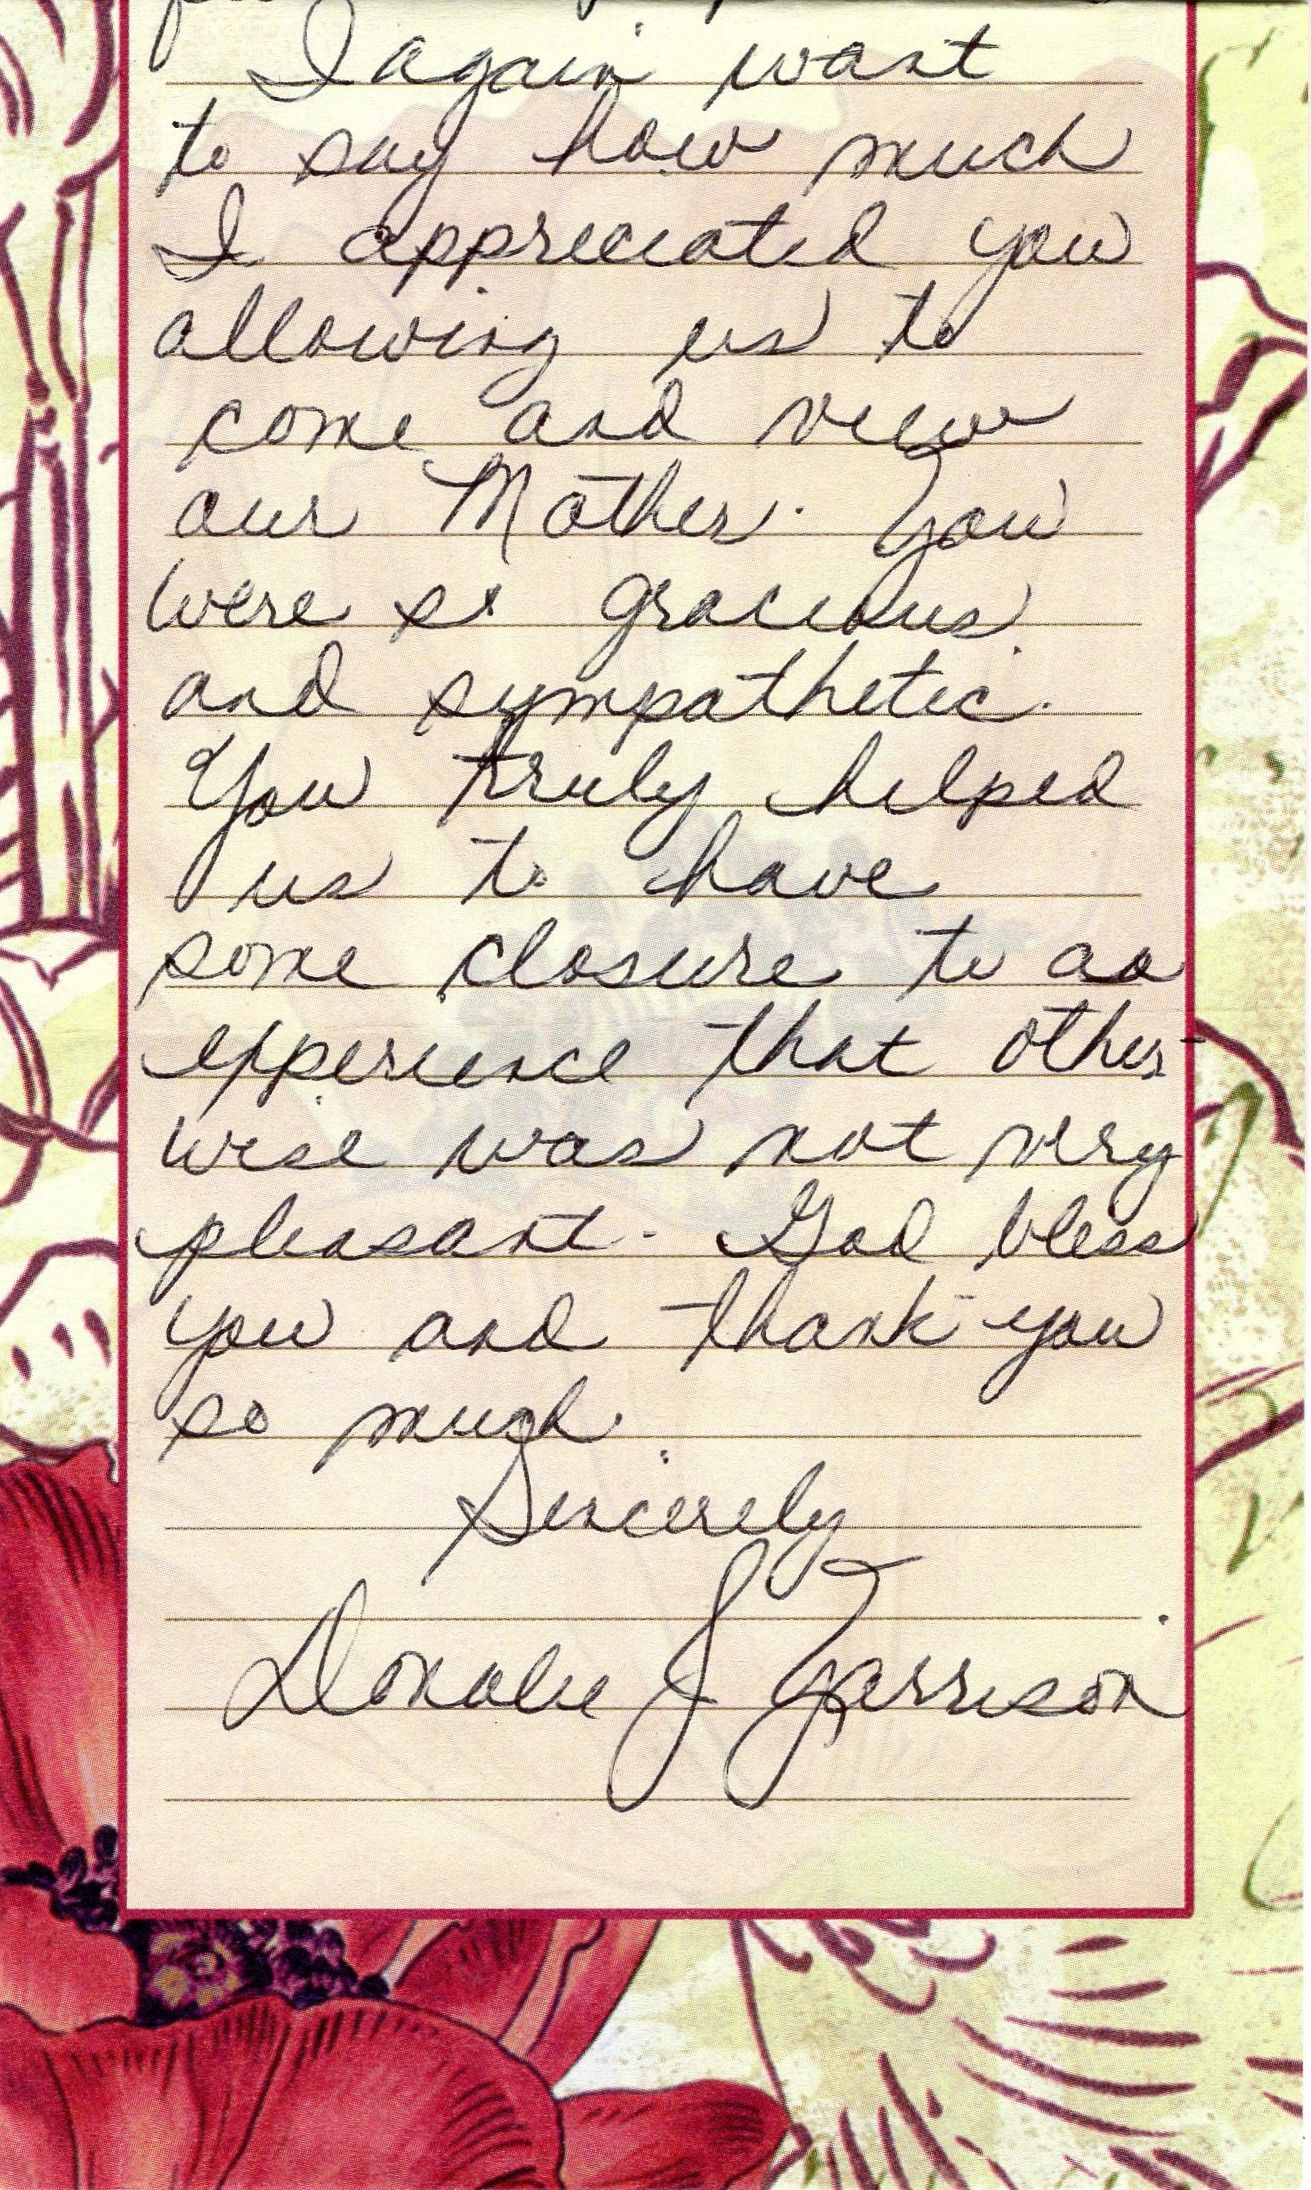 I again want
to say how much
I appreciated you
allowing us to
come and view
our Mother. You
were so gracious
and sympathetic.
You truly helped
us to have
some closure to an
experience that other-
wise was not very
pleasant. God bless
you and thank-you
so much.
Sincerely
J Garrison